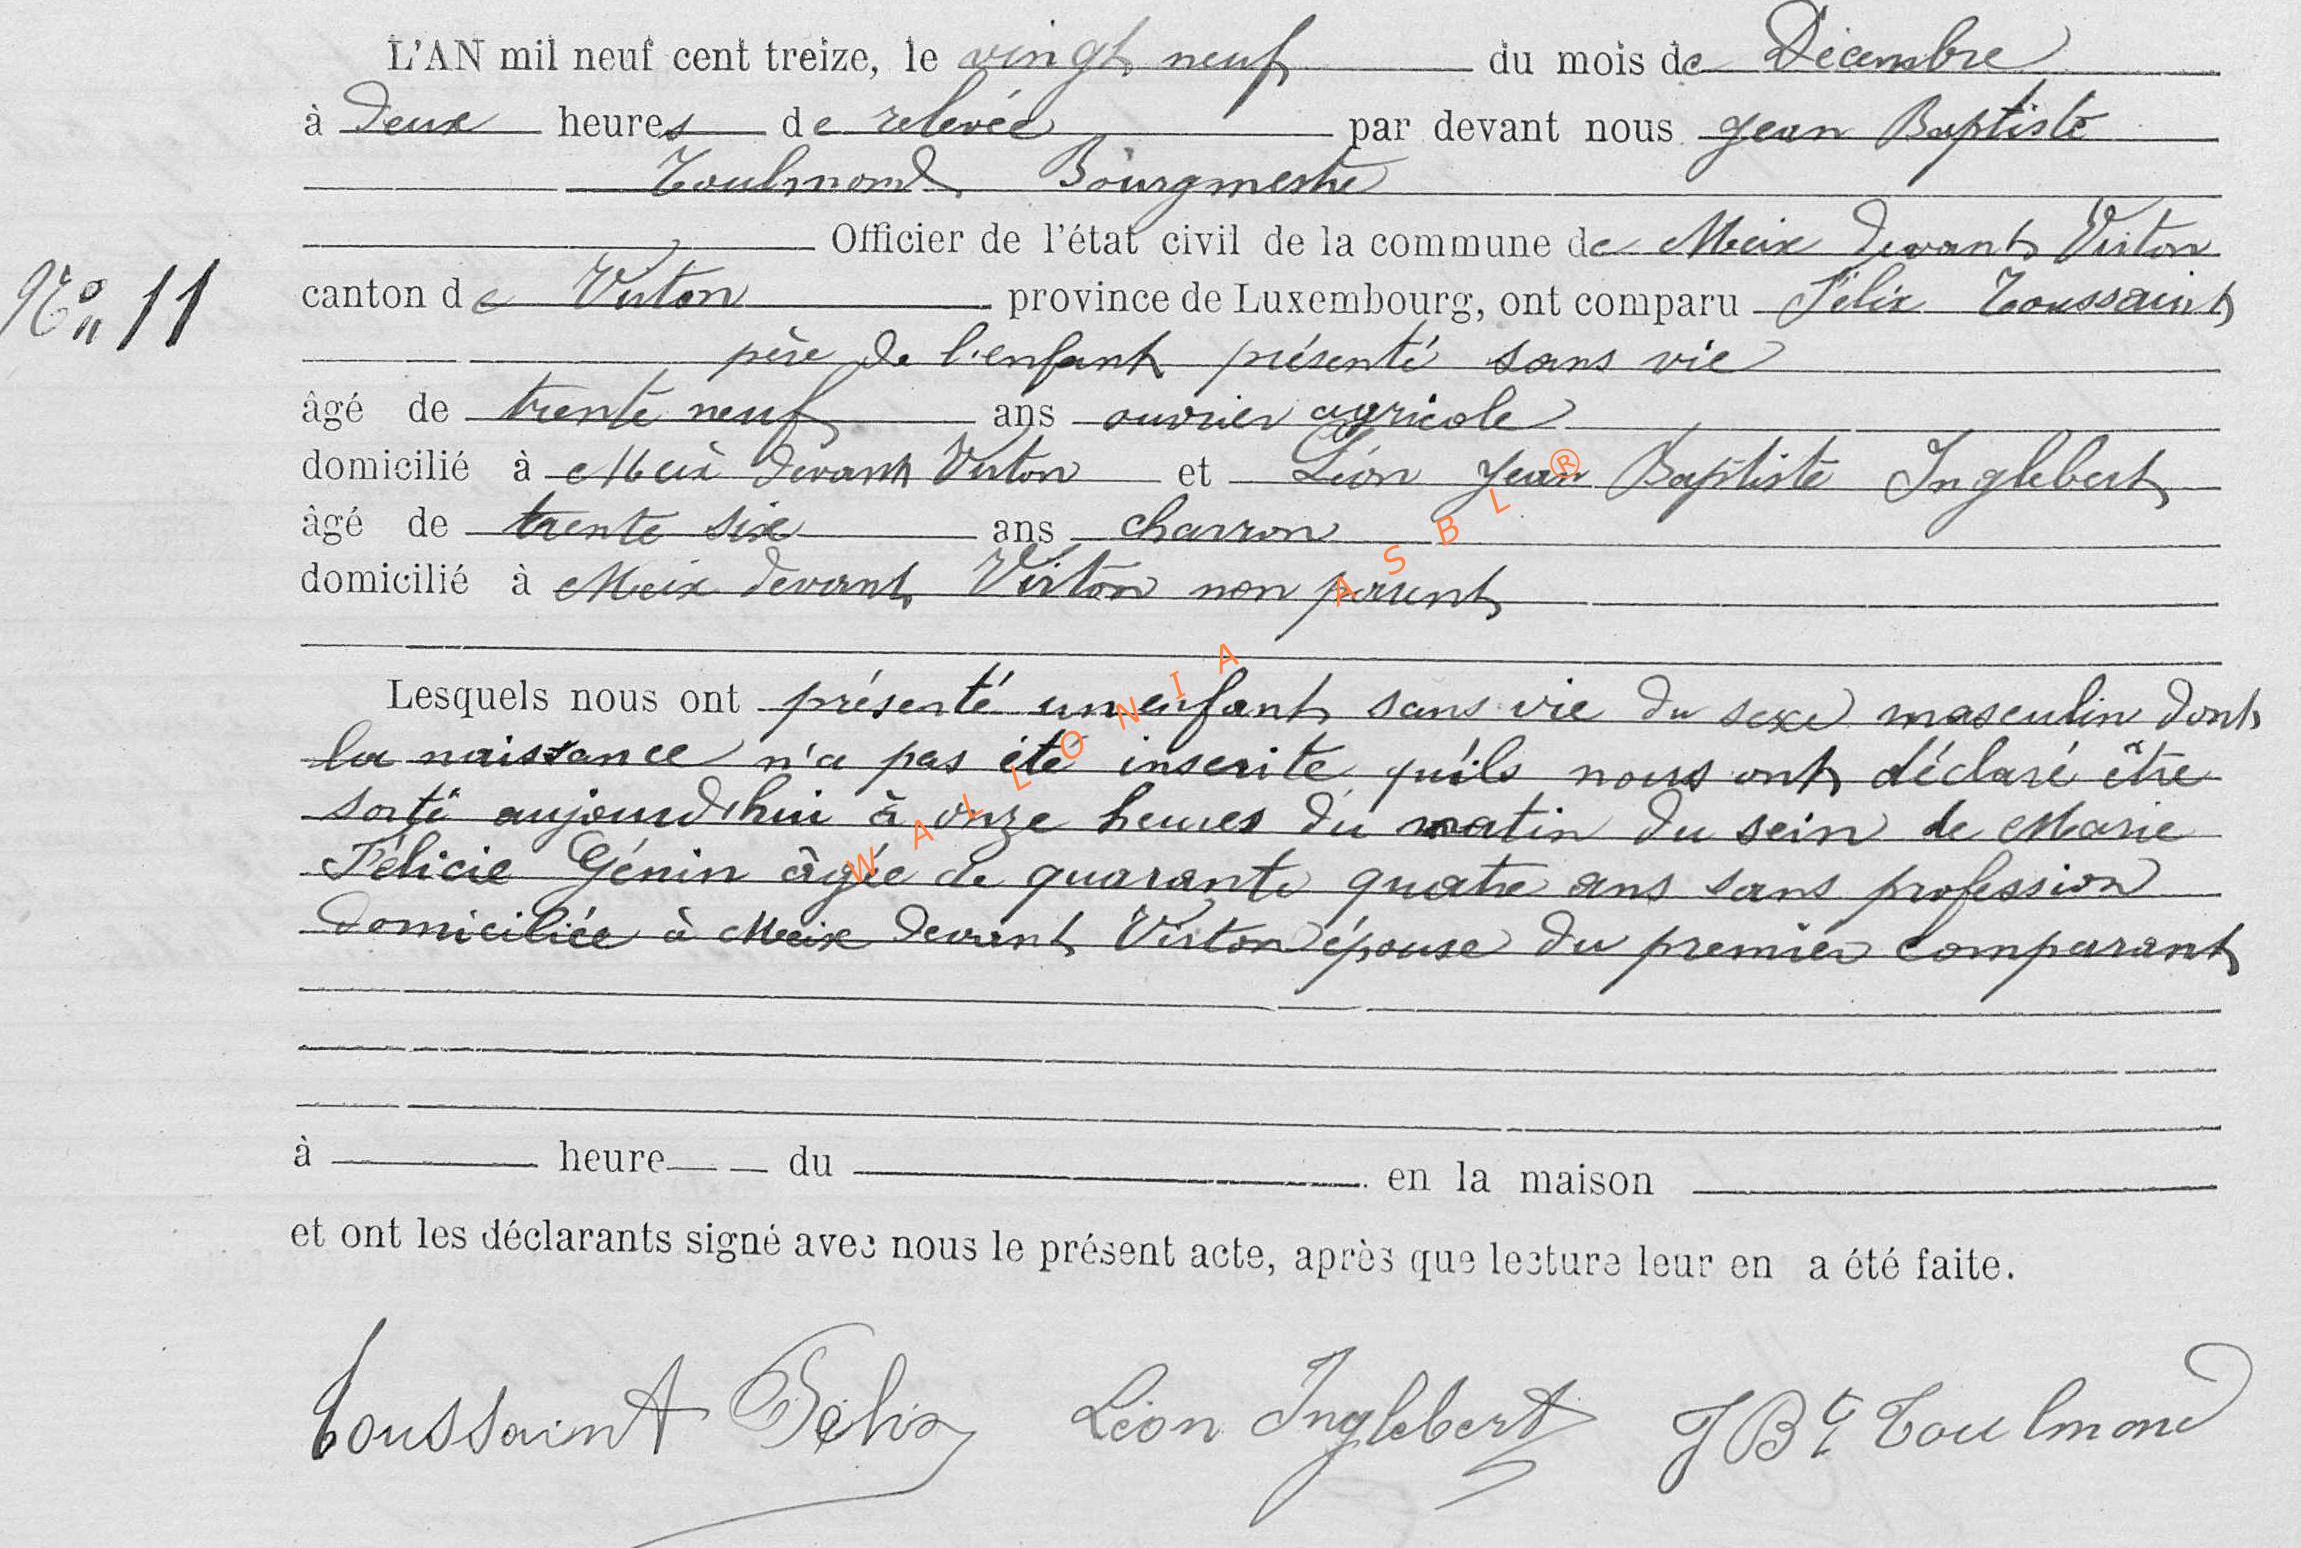 L'AN mil neuf cent treize, le vingt neuf du mois de Décembre
à deux heures de relevée par devant nous Jean Baptiste
Toulmond Bourgmestre
Officier de l'état civil de la commune de Meix devant Virton
N° 11
canton de Virton province de Luxembourg, ont comparu Félix Toussaint
père de l'enfant présenté sans vie
âgé de trente neuf ans ouvrier agricole
domicilié à Meix devant Virton et Léon Jean Baptiste Inglebert
âgé de trente six ans charron
domicilié à Meix devant Virton non parent
Lesquels nous ont présenté un enfant sans vie du sexe masculin dont
la naissance n'a pas été inscrite qu'ils nous ont déclaré être
sorti aujourd'hui à onze heures du matin du sein de Marie
Félicie Génin âgée de quarante quatre ans sans profession
domiciliée à Meix devant Virton épouse du premier comparant
à heure du en la maison
et ont les déclarants signé avec nous le présent acte, après que lecture leur en a été faite.
Toussaint Félix Léon Inglebert J Bte Toulmond
WALLONIA ASBL ®